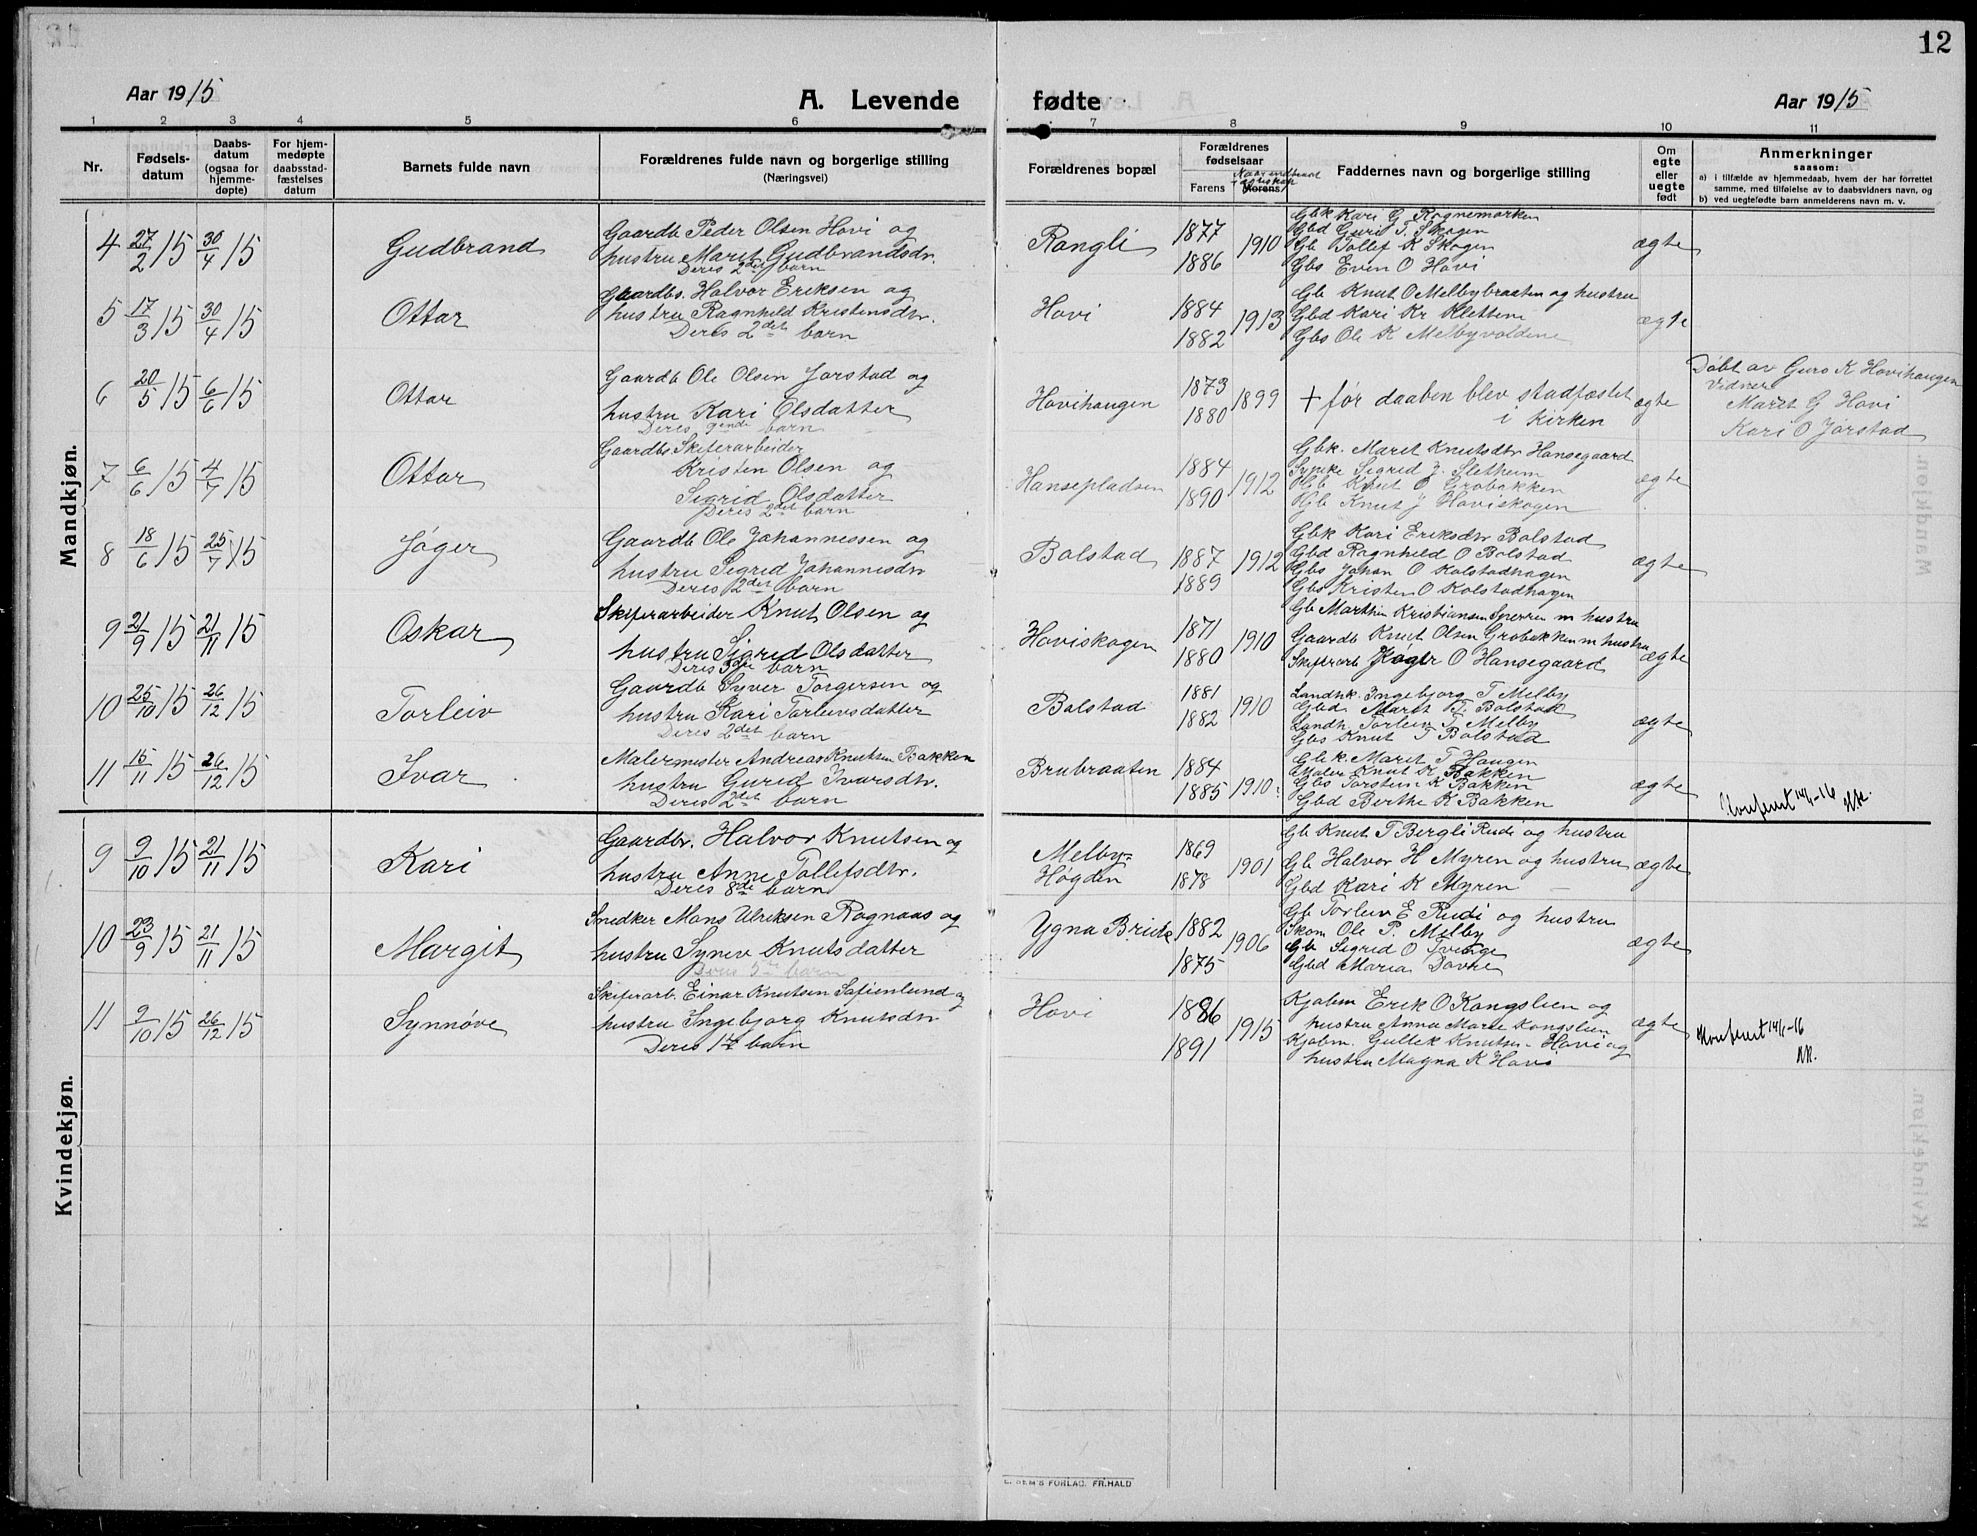 12
Aar 1915
A. Levende fødte
Aar 1915
1 2 3 4 5 6 7 8 9 10 11
Nr.
Fødsels-
datum
Daabs-
datum
(ogsaa for
hjemme-
døpte)
For hjem-
medøpte
daabsstad-
fæstelses
datum
Barnets fulde navn
Forældrenes fulde navn og borgerlige stilling
(Næringsvei)
Forældrenes bopæl
Forældrenes
fødselsaar
Farens
Morens
Faddernes navn og borgerlige stilling
Om
egte
eller
uegte
født
Anmerkninger
saasom:
a) i tilfælde av hjemmedaab, hvem der har forrettet
samme, med tilføielse av to daabsvidners navn, og
b) ved uegtefødte barn anmelderens navn m. v.
Mandkjøn.
4 27/2 15 30/4 15 Gudbrand
Gaardb Peder Olsen Hovi og
hustru Marit Gudbrandsdr.
Deres 2det barn
Rangli 1877 1886 1910
Gbk Kari G Rognemarken
Gbd Guri T. Skogen
Gb Tollef K Skogen
Gbs Even O Hovi
ægte
5 17/3 15 30/4 15 Ottar
Gaardbs. Halvor Eriksen og
hustru Ragnhild Kristensdtr.
Deres 2det barn
Hovi 1884 1882 1913
Gb Knut O Melbybraaten og hustru
Gbd Kari Kr Klettene
Gbs Ole K Melbyvoldene
ægte
6 20/5 15 6/6 15 Ottar
Gaardb Ole Olsen Jorstad og
hustru Kari Olsdatter
Deres 9ende barn
Hovihaugen 1873 1880 1899
+ før daaben blev stadfæstet
i kirken
ægte
Døbt av Guro K Hovihaugen
Vidner
Marit G Hovi
Kari O Jorstad
7 6/6 15 4/7 15 Ottar
Gaardbs Skiferarbeider
Kristen Olsen og
Sigrid Olsdatter
Deres 2det barn
Hansepladsen 1884 1890 1912
Gbk. Marit Knutsdtr Hansegaard
Sypike Sigrid J. Sletheim
Gb Knut O Grobakken
Gb Knut J Hoviskogen
ægte
8 18/6 15 25/7 15 Jøger
Gaardb Ole Johannessen og
hustru Sigrid Johannesdtr
Deres 2det barn
Bolstad 1887 1889 1912
Gbk Kari Eriksdtr Bolstad
Gbd Ragnhild O Bolstad
Gbs Johan O Kolstadhagen
Gbs Kristen O Kolstadhagen
ægte
9 21/9 15 21/11 15 Oskar
Skiferarbeider Knut Olsen og
hustru Sigrid Olsdatter
Deres 3die barn
Hoviskogen 1871 1880 1910
Gb Marthin Kristiansen Sperren m hustru
Gaardb Knut Olsen Grobakken m hustru
Skiferarb Jøger O Hansegaard
ægte
10 25/10 15 26/12 15 Torleiv
Gaardb Syver Torgersen og
hustru Kari Torleivsdatter
Deres 2det barn
Bolstad 1881 1882 1910
Landhk. Ingebjorg T Melby
Gbd Marit T. Bolstad
Landh Torleiv T Melby
Gbs Knut T Bolstad
ægte
11 15/11 15 26/12 15 Ivar
Malermester Andreas Knutsen Bakken
hustru Gurid Ivarsdtr.
Deres 2det barn
Brubraaten 1884 1885 1910
Gbk. Marit T Haugen
Maler Knut K Bakken
Gbs Torstein K Bakken
Gbd Berthe K Bakken
ægte
Konferert 14/1-16
Kvindekjøn.
9 9/10 15 21/11 15 Kari
Gaardbr. Halvor Knutsen og
hustru Anne Tollefsdtr.
Deres 8de barn
Melby-
Høgden 1869 1878 1901
Gb Knut T Bergli Rudi og hustru
Gb Halvor H Myren og hustru
Gbd Kari K Myren
ægte
10 23/9 15 21/11 15 Margit
Snedker Mons Ulriksen Rognaas og
hustru Synev Knutsdatter
Deres 5te barn
Ygna Bruk 1882 1875 1906
Gb Torleiv E Rudi og hustru
Skom Ole P. Melby
Gb Sigrid O Tvenge
Gbd Maria Dovre
ægte
11 9/10 15 26/12 15 Synnøve
Skiferarb. Einar Knutsen Safienlund og
hustru Ingebjorg Knutsdtr
Deres 1te barn
Hovi 1886 1891 1915
Kjøbm Erik O Kongslien og
hustru Anna Marie Kongslien
Kjøbm. Gullek Knutsen Hovi og
hustru Magna K Hovi
ægte
Konferert 14/1-16
E. SEM'S FORLAG, FR.HALD